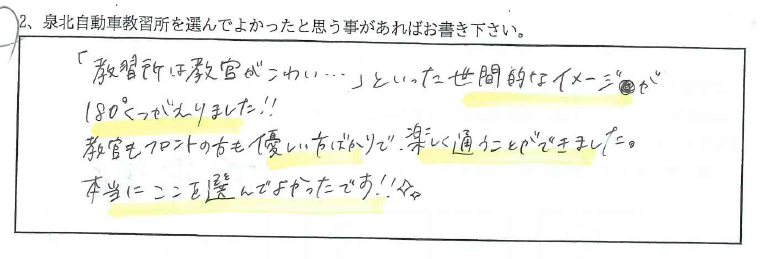 2、泉北自動車教習所を選んでよかったと思う事があればお書き下さい。
「教習所は教官がこわい…」といった世間的なイメージが
180°くつがえりました!!
教官もフロントの方も優しい方ばかりで、楽しく通うことができました。
本当にここを選んでよかったです!!☆☆